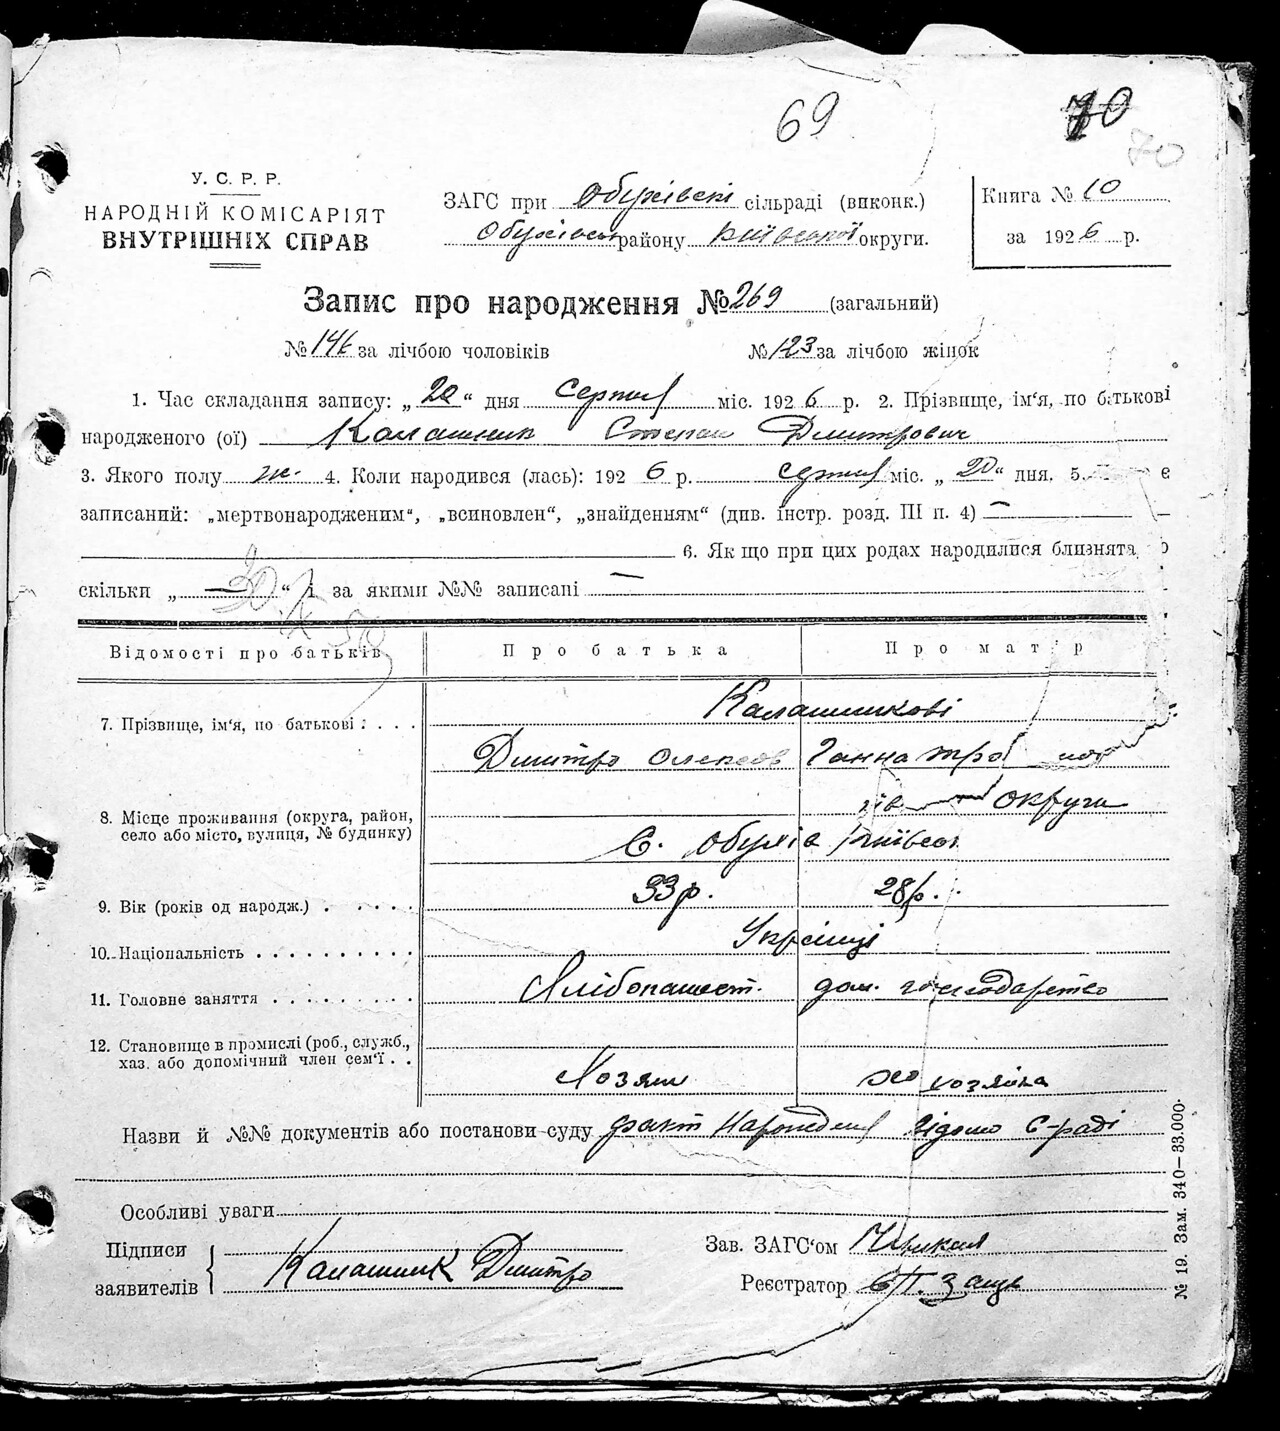 69
70
70
У. С. Р. Р.
НАРОДНІЙ КОМІСАРІЯТ
ВНУТРІШНІХ СПРАВ
ЗАГС при Обухівскі сільраді (виконк.)
Обухівськ району Київської округи.
Книга № 10
за 1926 р.
Запис про народження № 269 (загальний)
№ 146 за лічбою чоловіків № 123 за лічбою жінок
1. Час складання запису: „20“ дня серпня міс. 1926 р. 2. Прізвище, ім‘я, по батькові
народженого (ої) Калашник Степан Дмитрович
3. Якого полу 4. Коли народився (лась): 1926 р. серпня міс. „20“ дня. 5. є
записаний: „мертвонародженим“, „всиновлен“, „знайденням“ (див. інстр. розд. III п. 4) —
6. Якщо при цих родах народилися близнята
скільки „—“ і за якими №№ записані —
Відомості про батьків Про батька Про матір
Калашникові
7. Прізвище, ім‘я, по батькові : . . .
Дмитро Олексов Ганна
округи
8. Місце проживання (округа, район,
село або місто, вулиця, № будинку)
С. Обухів Київськ
33р. 28р.
9. Вік (років од народж.) . . . . .
Українці
10. Національність . . . . . . . . . .
11. Головне заняття . . . . . . . . . Хлібопашест. дом. господарство
12. Становище в промислі (роб., служб.,
хаз. або допомічний член сем‘ї . .
Хозяин хозяйка
Назви й №№ документів або постанови суду факт народження відомо С-раді
Особливі уваги
Підписи
заявителів
Калашник Дмитро
Зав. ЗАГС‘ом
Реєстратор
№ 19. Зам. 340—33.000.